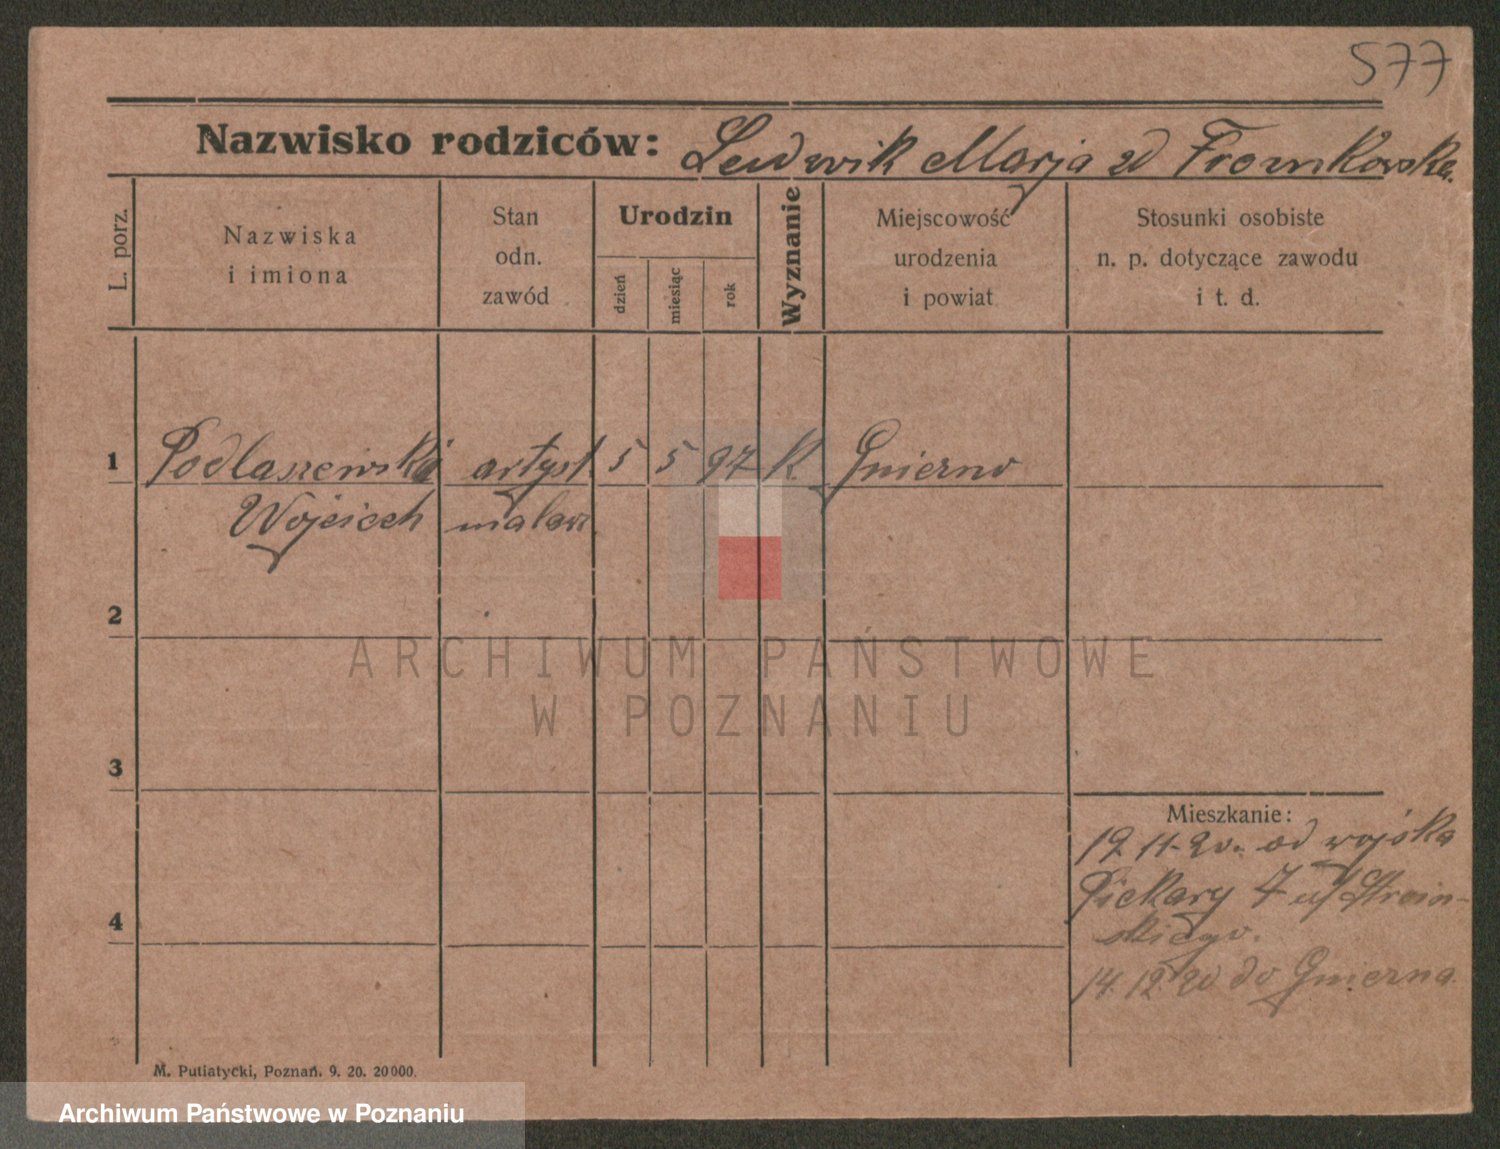 577
Nazwisko rodziców: Ludwik Marja zd Fromkowska.
L. porz.
Nazwiska
i imiona
Stan
odn.
zawód
Urodzin
dzień
miesiąc
rok
Wyznanie
Miejscowość
urodzenia
i powiat
Stosunki osobiste
n. p. dotyczące zawodu
i t. d.
1 Podlaszewski artyst 5 5 97 K. Gniezno
Wojciech malarz
2
ARCHIWUM PAŃSTWOWE
W POZNANIU
3
Mieszkanie:
19.11.20. od wojska
Piekary 7 u/ Stroin-
skiego.
4
14.12.20 do Gniezna.
M. Putiatycki, Poznań. 9. 20. 20000.
Archiwum Państwowe w Poznaniu